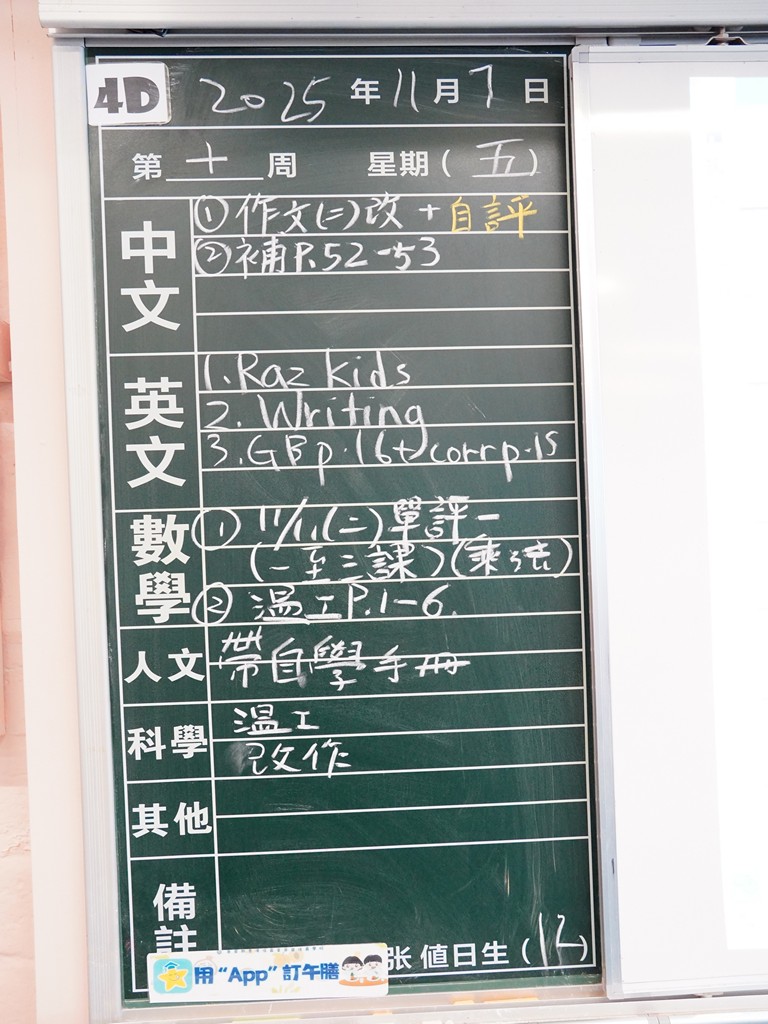 4D 2025年11月7日
第十周 星期(五)
中文
①作文(二)改+自評
②補P.52-53
英文
1.Raz kids
2.Writing
3.GBp.16+corrp.15
數學
①11/11(二)單評一
(一至三課)(乘法)
②温工P.1-6.
人文
帶自學手冊
科學
温工
改作
其他
備註
张 值日生(12)
用“App”訂午膳